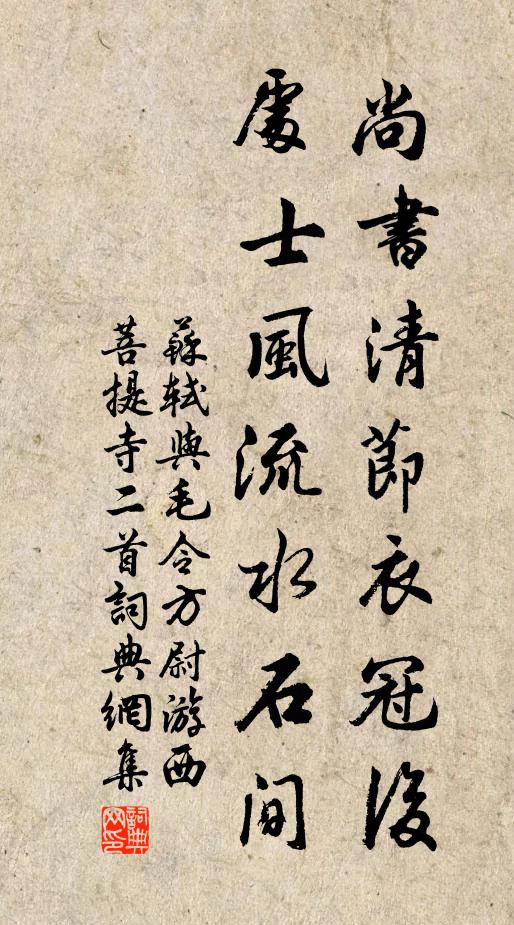 尚書清節衣冠後
處士風流水石间
蘇軾與毛令方尉游西
菩提寺二首詞典網集
詞典網印